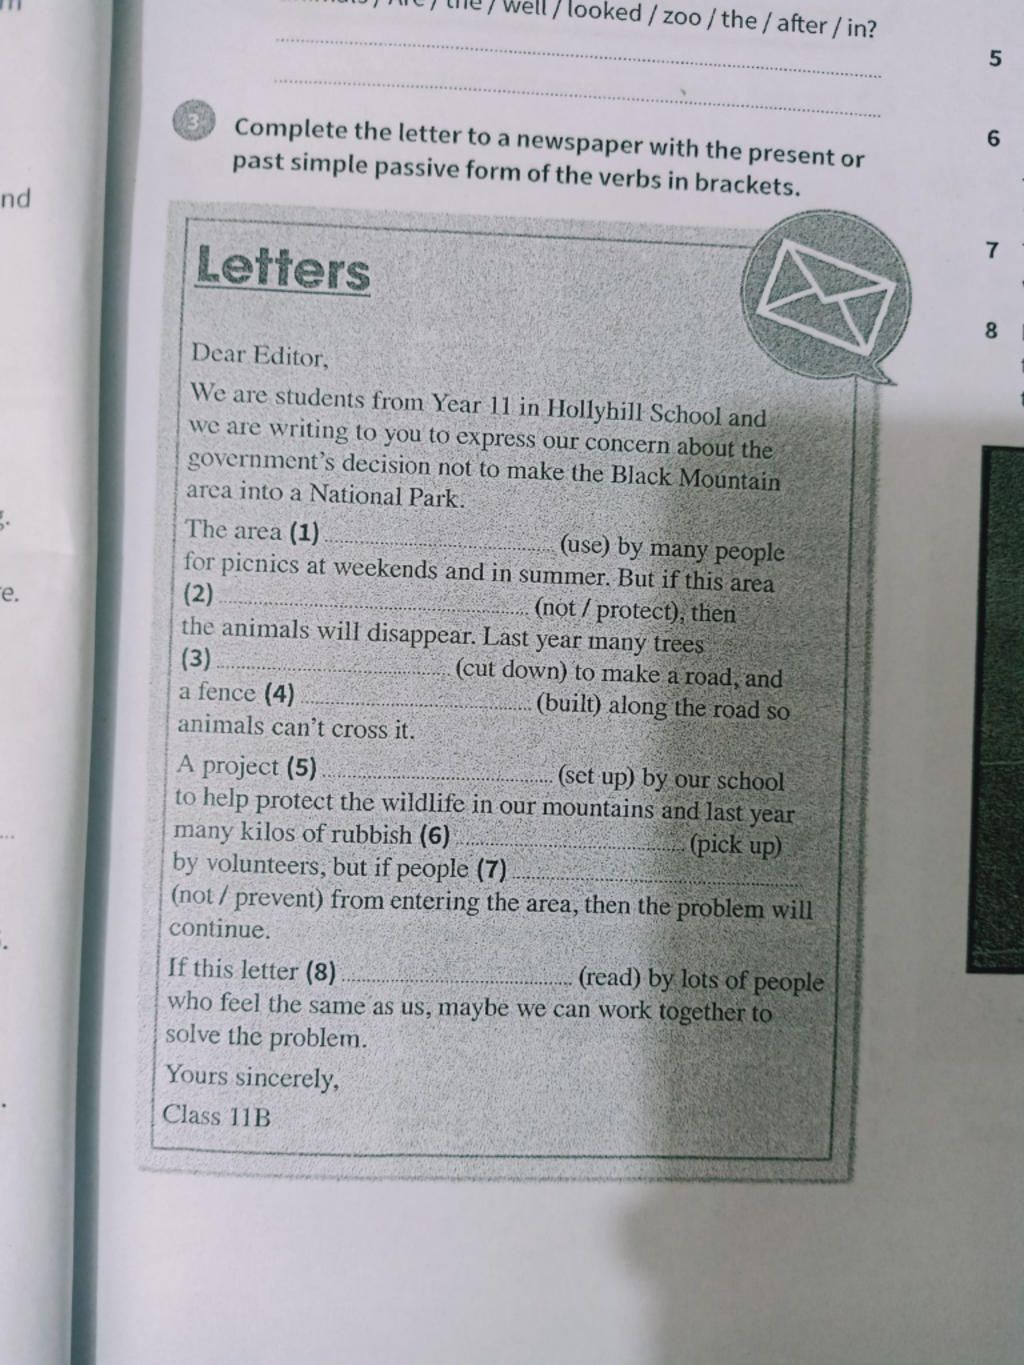 / the / well / looked / zoo / the / after / in?
3 Complete the letter to a newspaper with the present or
past simple passive form of the verbs in brackets.
Letters
Dear Editor,
We are students from Year 11 in Hollyhill School and
we are writing to you to express our concern about the
government's decision not to make the Black Mountain
area into a National Park.
The area (1) ........................ (use) by many people
for picnics at weekends and in summer. But if this area
(2) ........................ (not / protect), then
the animals will disappear. Last year many trees
(3) ........................ (cut down) to make a road, and
a fence (4) ........................ (built) along the road so
animals can't cross it.
A project (5) ........................ (set up) by our school
to help protect the wildlife in our mountains and last year
many kilos of rubbish (6) ........................ (pick up)
by volunteers, but if people (7) ........................
(not / prevent) from entering the area, then the problem will
continue.
If this letter (8) ........................ (read) by lots of people
who feel the same as us, maybe we can work together to
solve the problem.
Yours sincerely,
Class 11B
nd
5
6
7
8